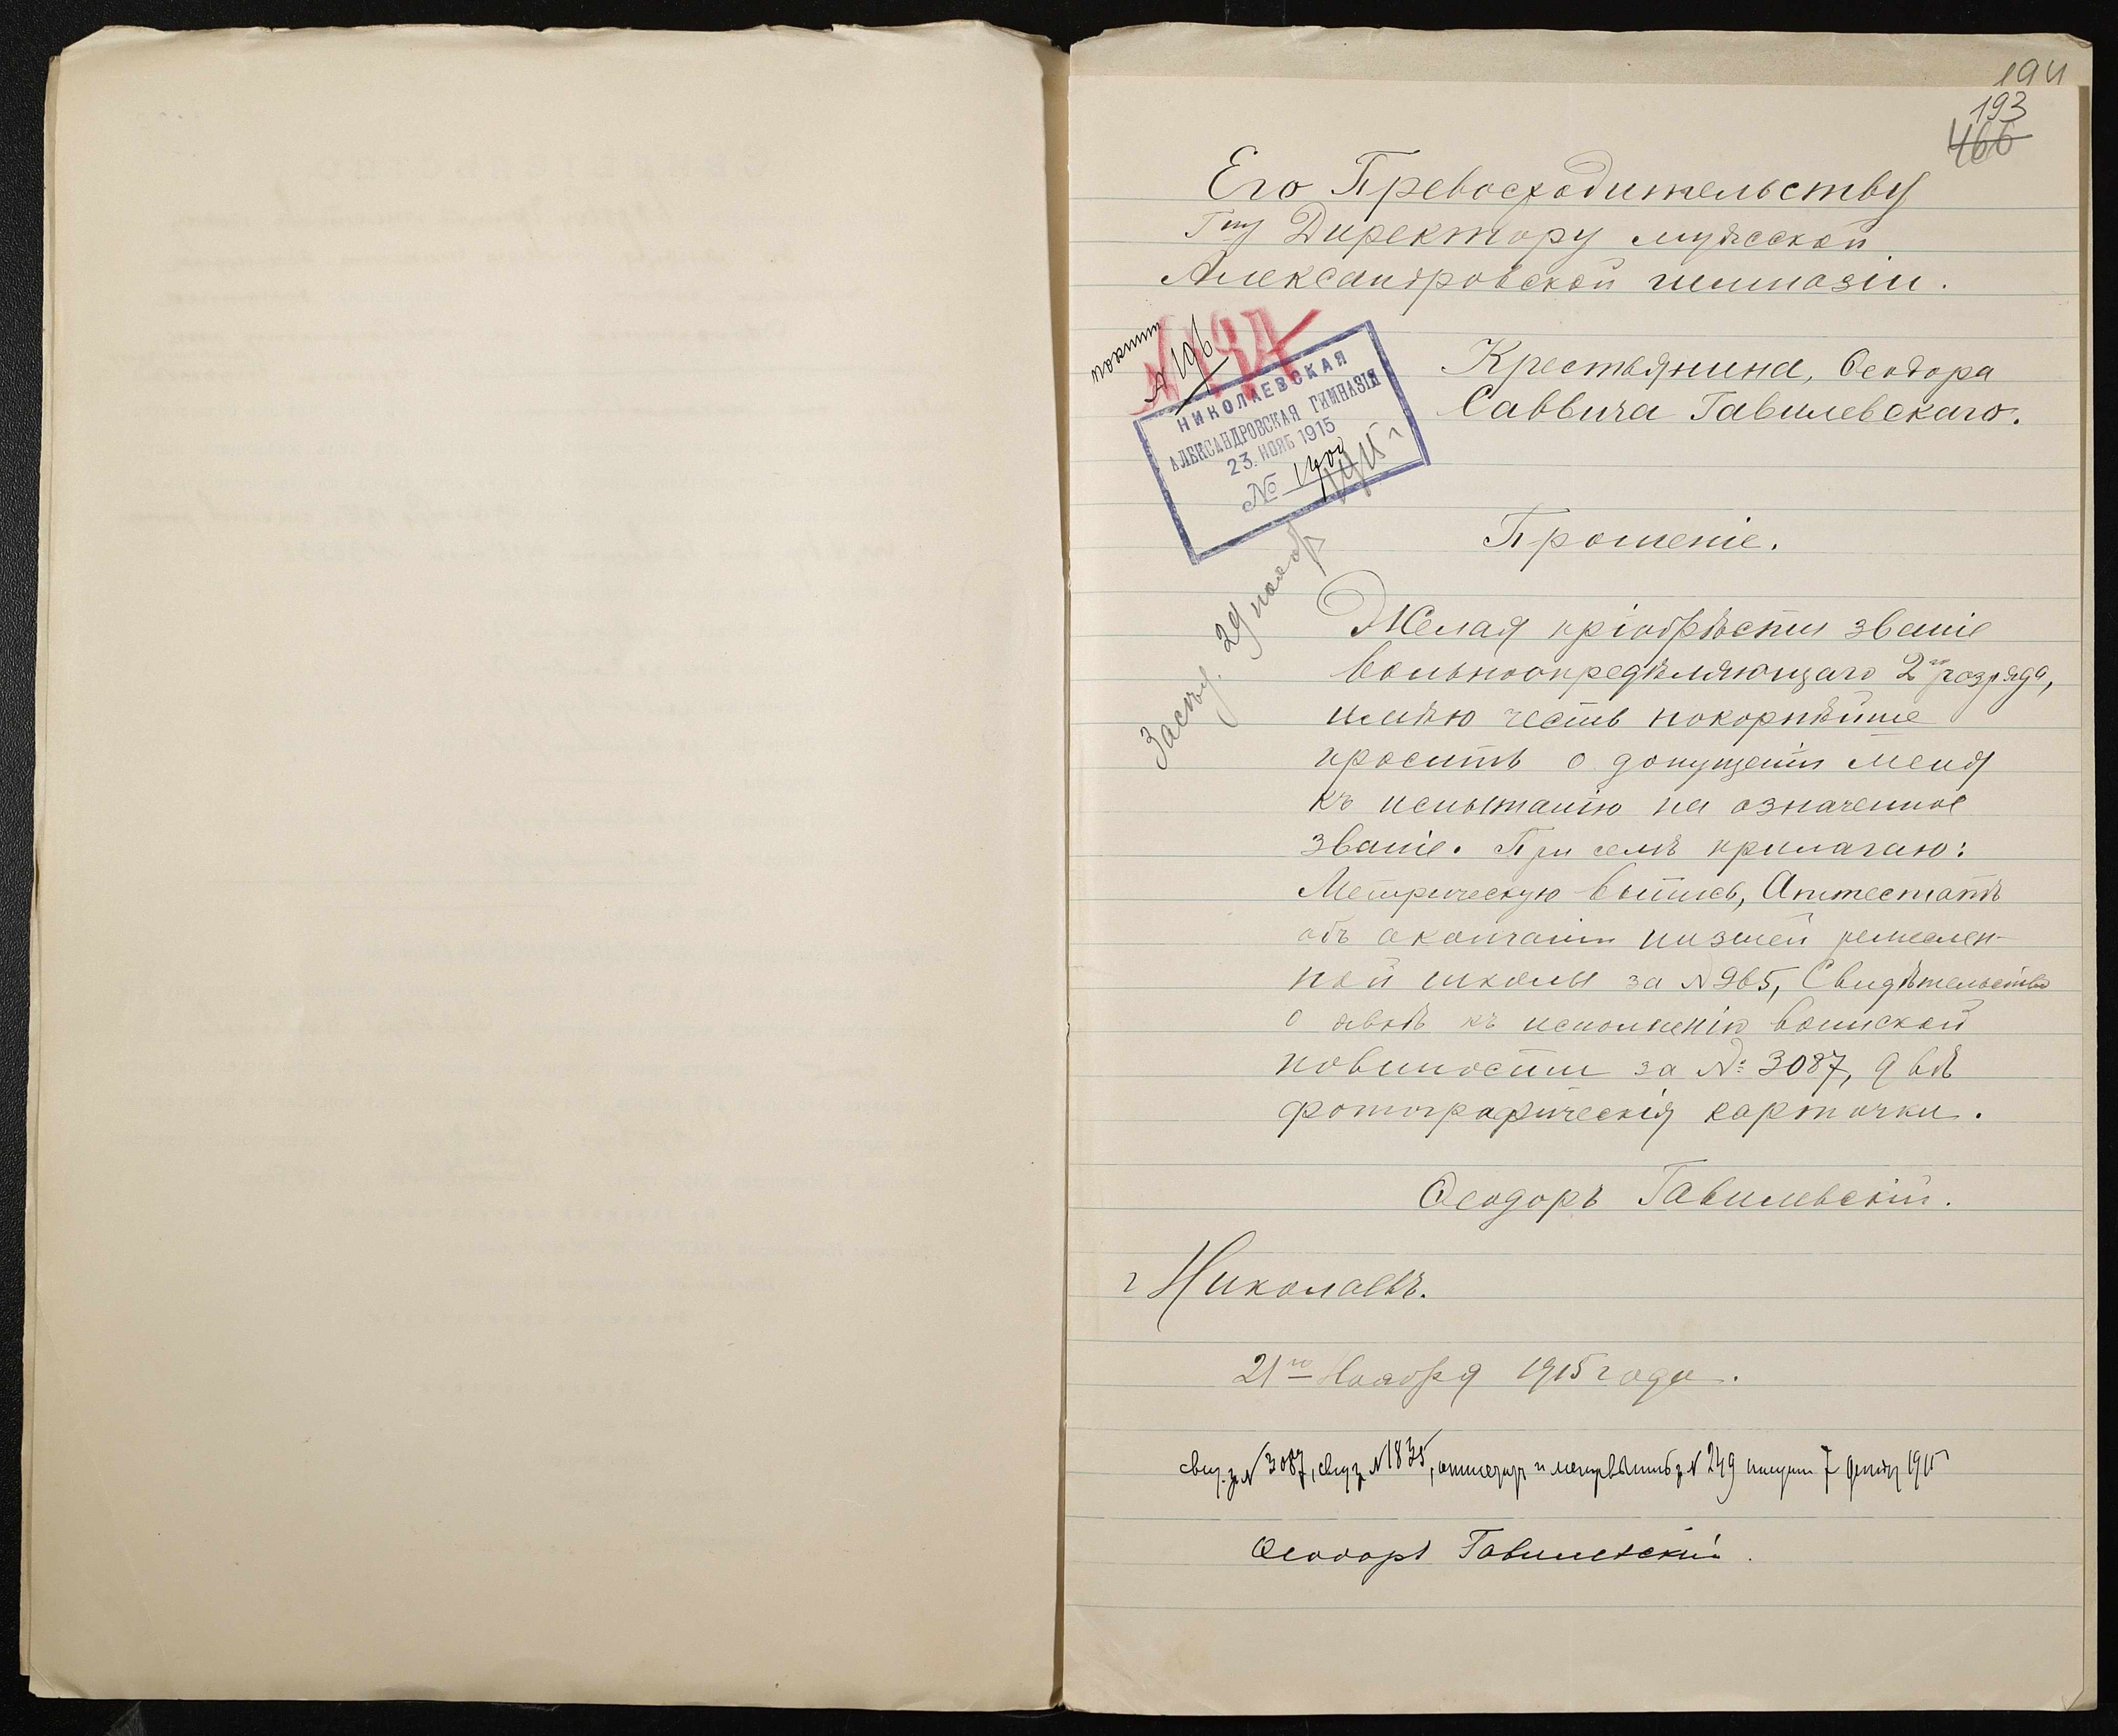 194
193
466
Его Превосходительству
Г-ну Директору мужеской
Александровской гимназіи.
Крестьянина, Ѳеодора
Саввича Гавилевскаго.
№ 196
НИКОЛАЕВСКАЯ
АЛЕКСАНДРОВСКАЯ ГИМНАЗІЯ
23. НОЯБ 1915
№ 1400
Прошеніе.
29 нояб
Желая пріобрѣсти званіе
вольноопредѣляющаго 2го разряда,
имѣю честь покорнѣйше
просить о допущеніи меня
къ испытанію на означенное
званіе. При семъ прилагаю:
Метрическую выпись, Аттестатъ
объ окончаніи низшей ремеслен-
ной школы за N 965, Свидѣтельство
о явкѣ къ исполненію воинской
повиности за №: 3087, двѣ
фотографическія карточки.
Ѳеодоръ Гавилевскій.
г Николаевъ.
21го Ноября 1915 года.
свид. за N 3087, свид за N 1835, аттестатъ и метр выпись за N 249 получил 7 декабр 1915
Ѳеодоръ Гавилевскій.